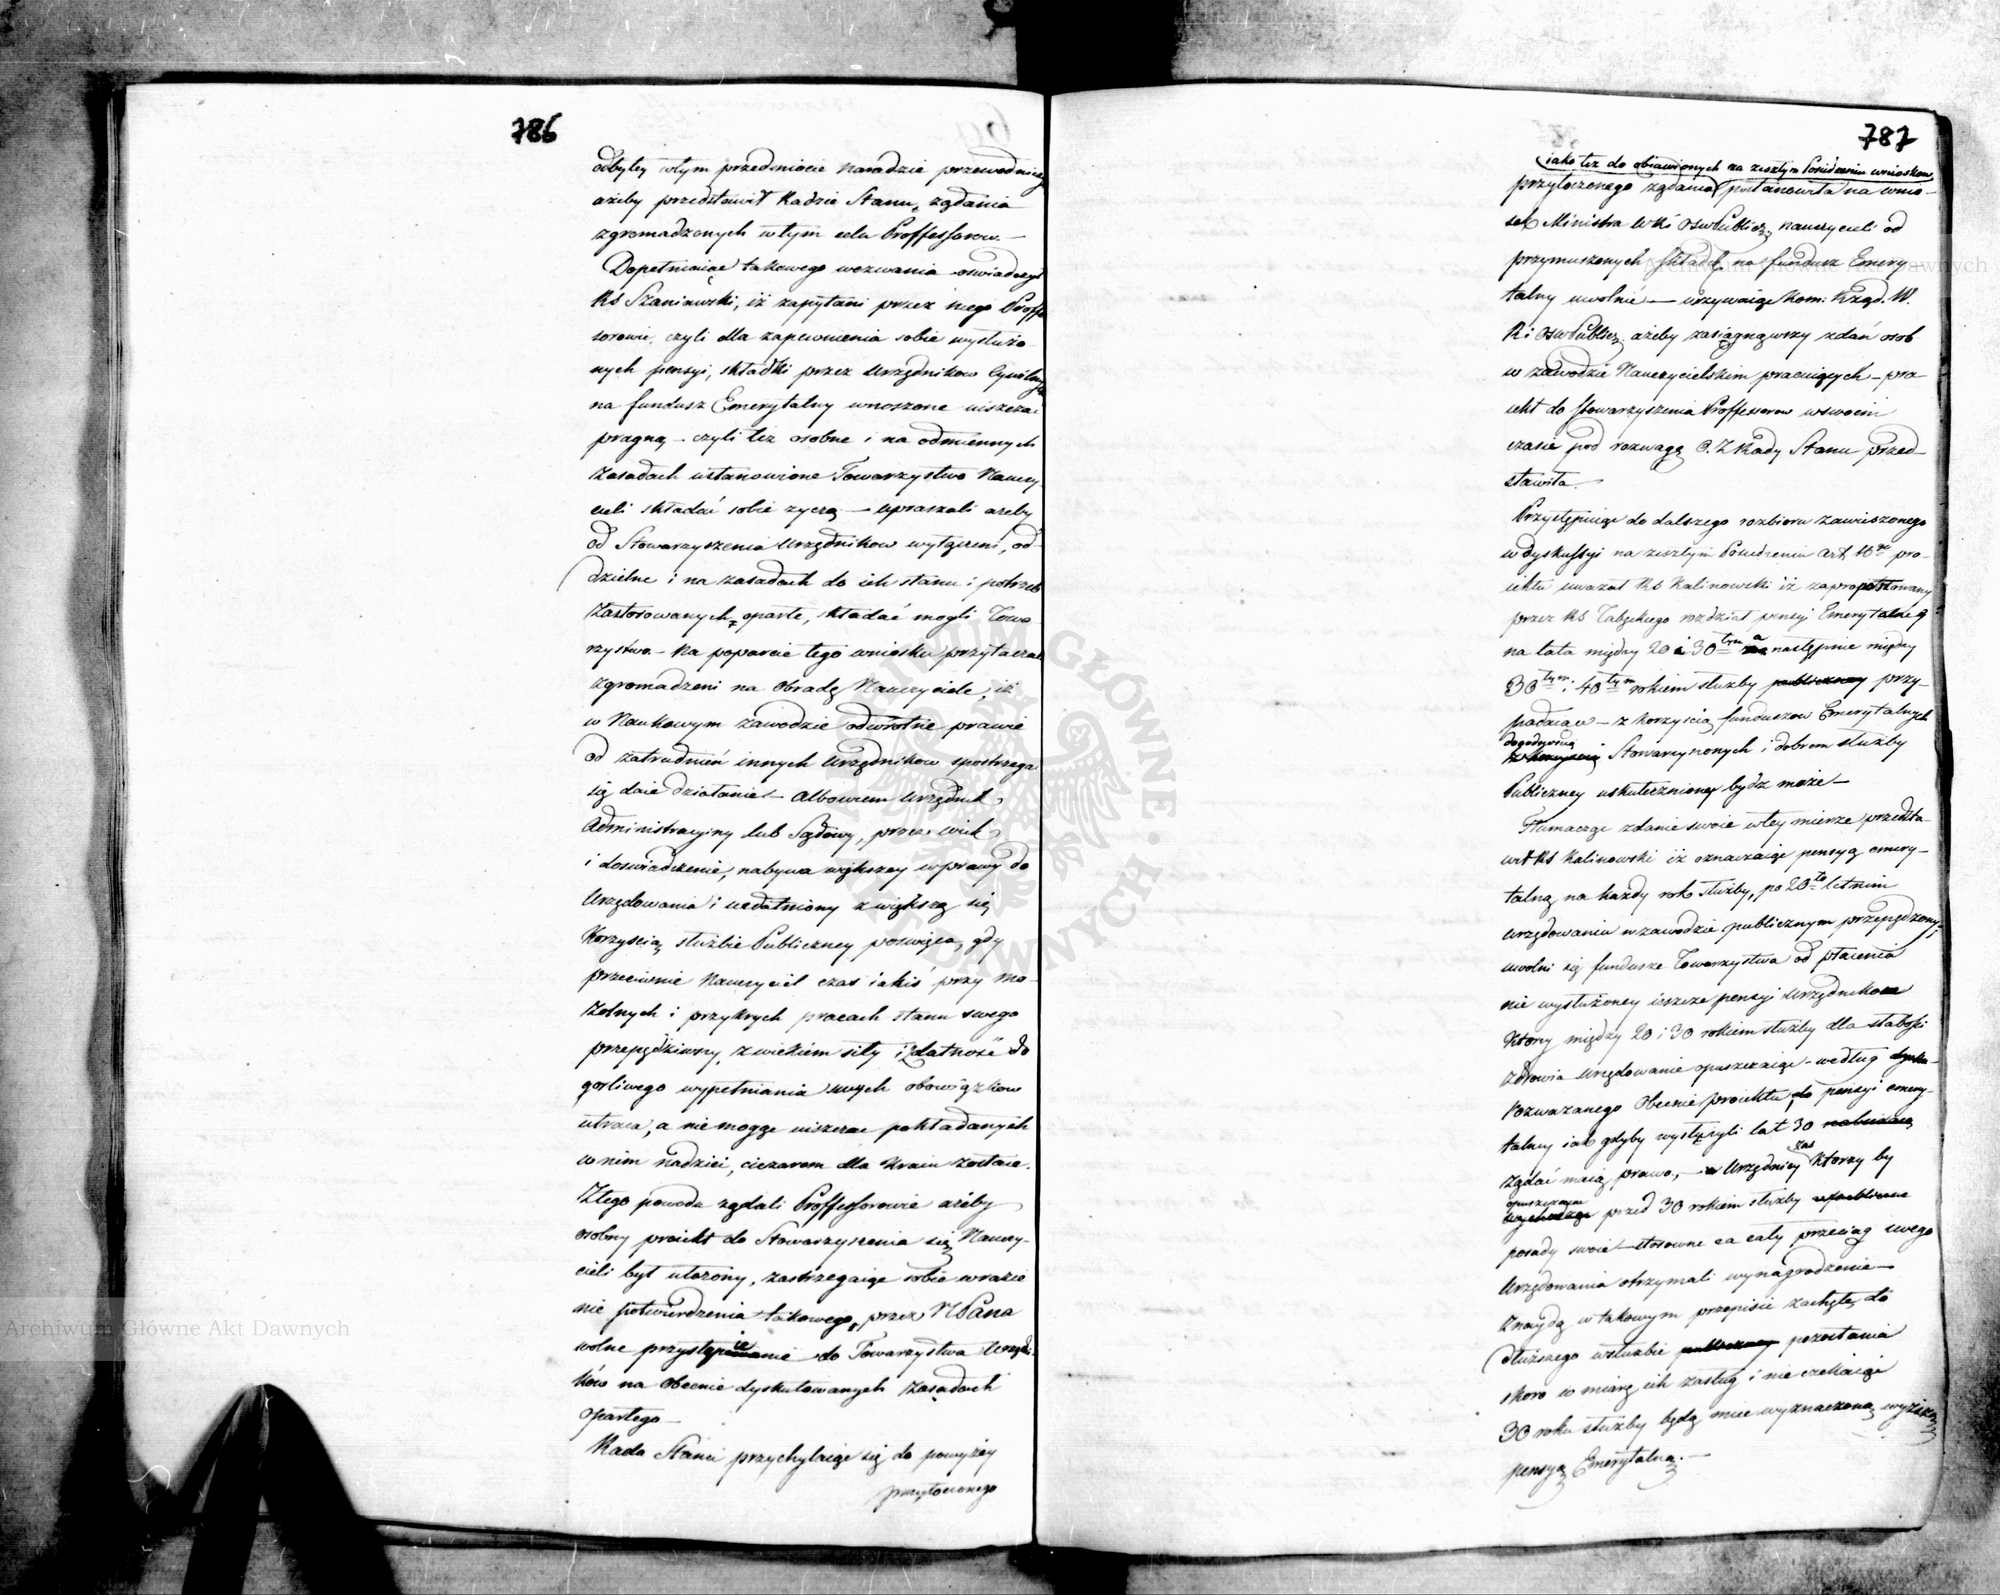 786
odbytey wtym przedmiocie naradzie przewodniczył
ażeby przedstawił Radzie Stanu, żądania
zgromadzonych wtym celu Proffessorow. —
Dopełniaiąc takowego wezwania oswiadczył
RS Szaniawski, iż zapytani przez niego Proffe
sorowie, czyli dla zapewnienia sobie wysłużo
nych pensyi, składki przez Urzędnikow Cywilnych
na fundusz Emerytalny wnoszone uiszczać
pragną — czyli też osobne i na odmiennych
Zasadach ustanowione Towarzystwo Nauczy-
cieli składać sobie zyczą — upraszali ażeby
od Stowarzyszenia Urzędnikow wyłączeni, od-
dzielne i na zasadach do ich stanu i potrzeb
Zastosowanych oparte, składać mogli Towa
rzystwo. — Na poparcie tego wniosku przytaczali
zgromadzeni na obradę Nauczyciele, iż
w Naukowym zawodzie odwrotne prawie
od zatrudnień innych Urzędnikow spostrzegać
się daie działanie — Albowiem Urzędnik
Administracyiny lub Sądowy, przez wiek
i doswiadczenie, nabywa większey wprawy do
Urzędowania i uzdatniony z większą się
Korzyscią służbie Publiczney poswięca, gdy
przeciwnie Nauczyciel czas iakiś przy mo-
zolnych i przykrych pracach stanu swego
przepędziwszy, z wiekiem siły i zdatność do
gorliwego wypełniania swych obowiązkow
utraca, a nie mogąc uiszczać pokładanych
w nim nadziei, ciezarem dla Kraiu zostaie.
Z tego powodu żądali Proffessorowie ażeby
osobny proiekt do Stowarzyszenia się Nauczy-
cieli był ułożony, zastrzegaiąc sobie wrazie
nie potwierdzenia takowego, przez NPana
wolne przystąpienie do Towarzystwa Urzędni-
kow na obecnie dyskutowanych Zasadach
opartego —
Rada Stanu przychylaiąc się do powyżey
przytoczonego
787
iako też do obiawionych na zeszłym Posiedzeniu wnioskow
przytoczonego żądania postanowiła na wnio-
sek Ministra WRi OswPublicz. nauczycieli od
przymuszonych składek na fundusz Emery-
talny uwolnić — wzywaiąc Kom: Rząd. W.
R i OswPublicz. ażeby zasiągnąwszy zdań osob
w zawodzie Nauczycielskim pracuiących — pro
iekt do Stowarzyszenia Proffessorow wswoim
czasie pod rozwagę Rady Stanu przed-
stawiła. —
Przystępuiąc do dalszego rozbioru zawieszonego
w dyskussyi na zeszłym Posiedzeniu Art. 10go pro-
iektu uważał RS Kalinowski iż zaproponowany
przez RS rozdział pensyi Emerytalney
na lata między 20 i 30tym a następnie między
30tym i 40tym rokiem służby publiczney przy-
padaiące — z korzyscią funduszow Emerytalnych
dogodnoscią
z korzyscią Stowarzyszonych i dobrem służby
Publiczney uskutecznioney bydz może —
Tłumacząc zdanie swoie wtey mierze przedsta-
wił RS Kalinowski iż oznaczaiąc pensyą emery-
talną na każdy rok służby, po 20to letnim
urzędowaniu w zawodzie publicznym przepędzony,
uwolni się fundusze Towarzystwa od płacenia
nie wysłużoney ieszcze pensyi Urzędnikom
ktorzy między 20 i 30 rokiem służby dla słabości
zdrowia urzędowanie opuszczaiąc — według
rozważanego obecnie proiektu, do pensyi emery-
talney iak gdyby wysłużyli lat 30
żądać maią prawo, — Urzędnicy zaś ktorzy by
opuszczaiąc
wychodząc przed 30 rokiem służby
posady swoie — stosowne za cały przeciąg swego
Urzędowania otrzymali wynagrodzenie —
Znaydą w takowym przepisie zachętę do
dłuższego wsłużbie publiczney pozostania
skoro w miarę ich zasług i nie czekaiąc
30 roku służby będą mieć wyznaczoną wyższą
pensyą Emerytalną. —
Archiwum Główne Akt Dawnych
Archiwum Główne Akt Dawnych
ARCHIWUM GŁÓWNE AKT DAWNYCH